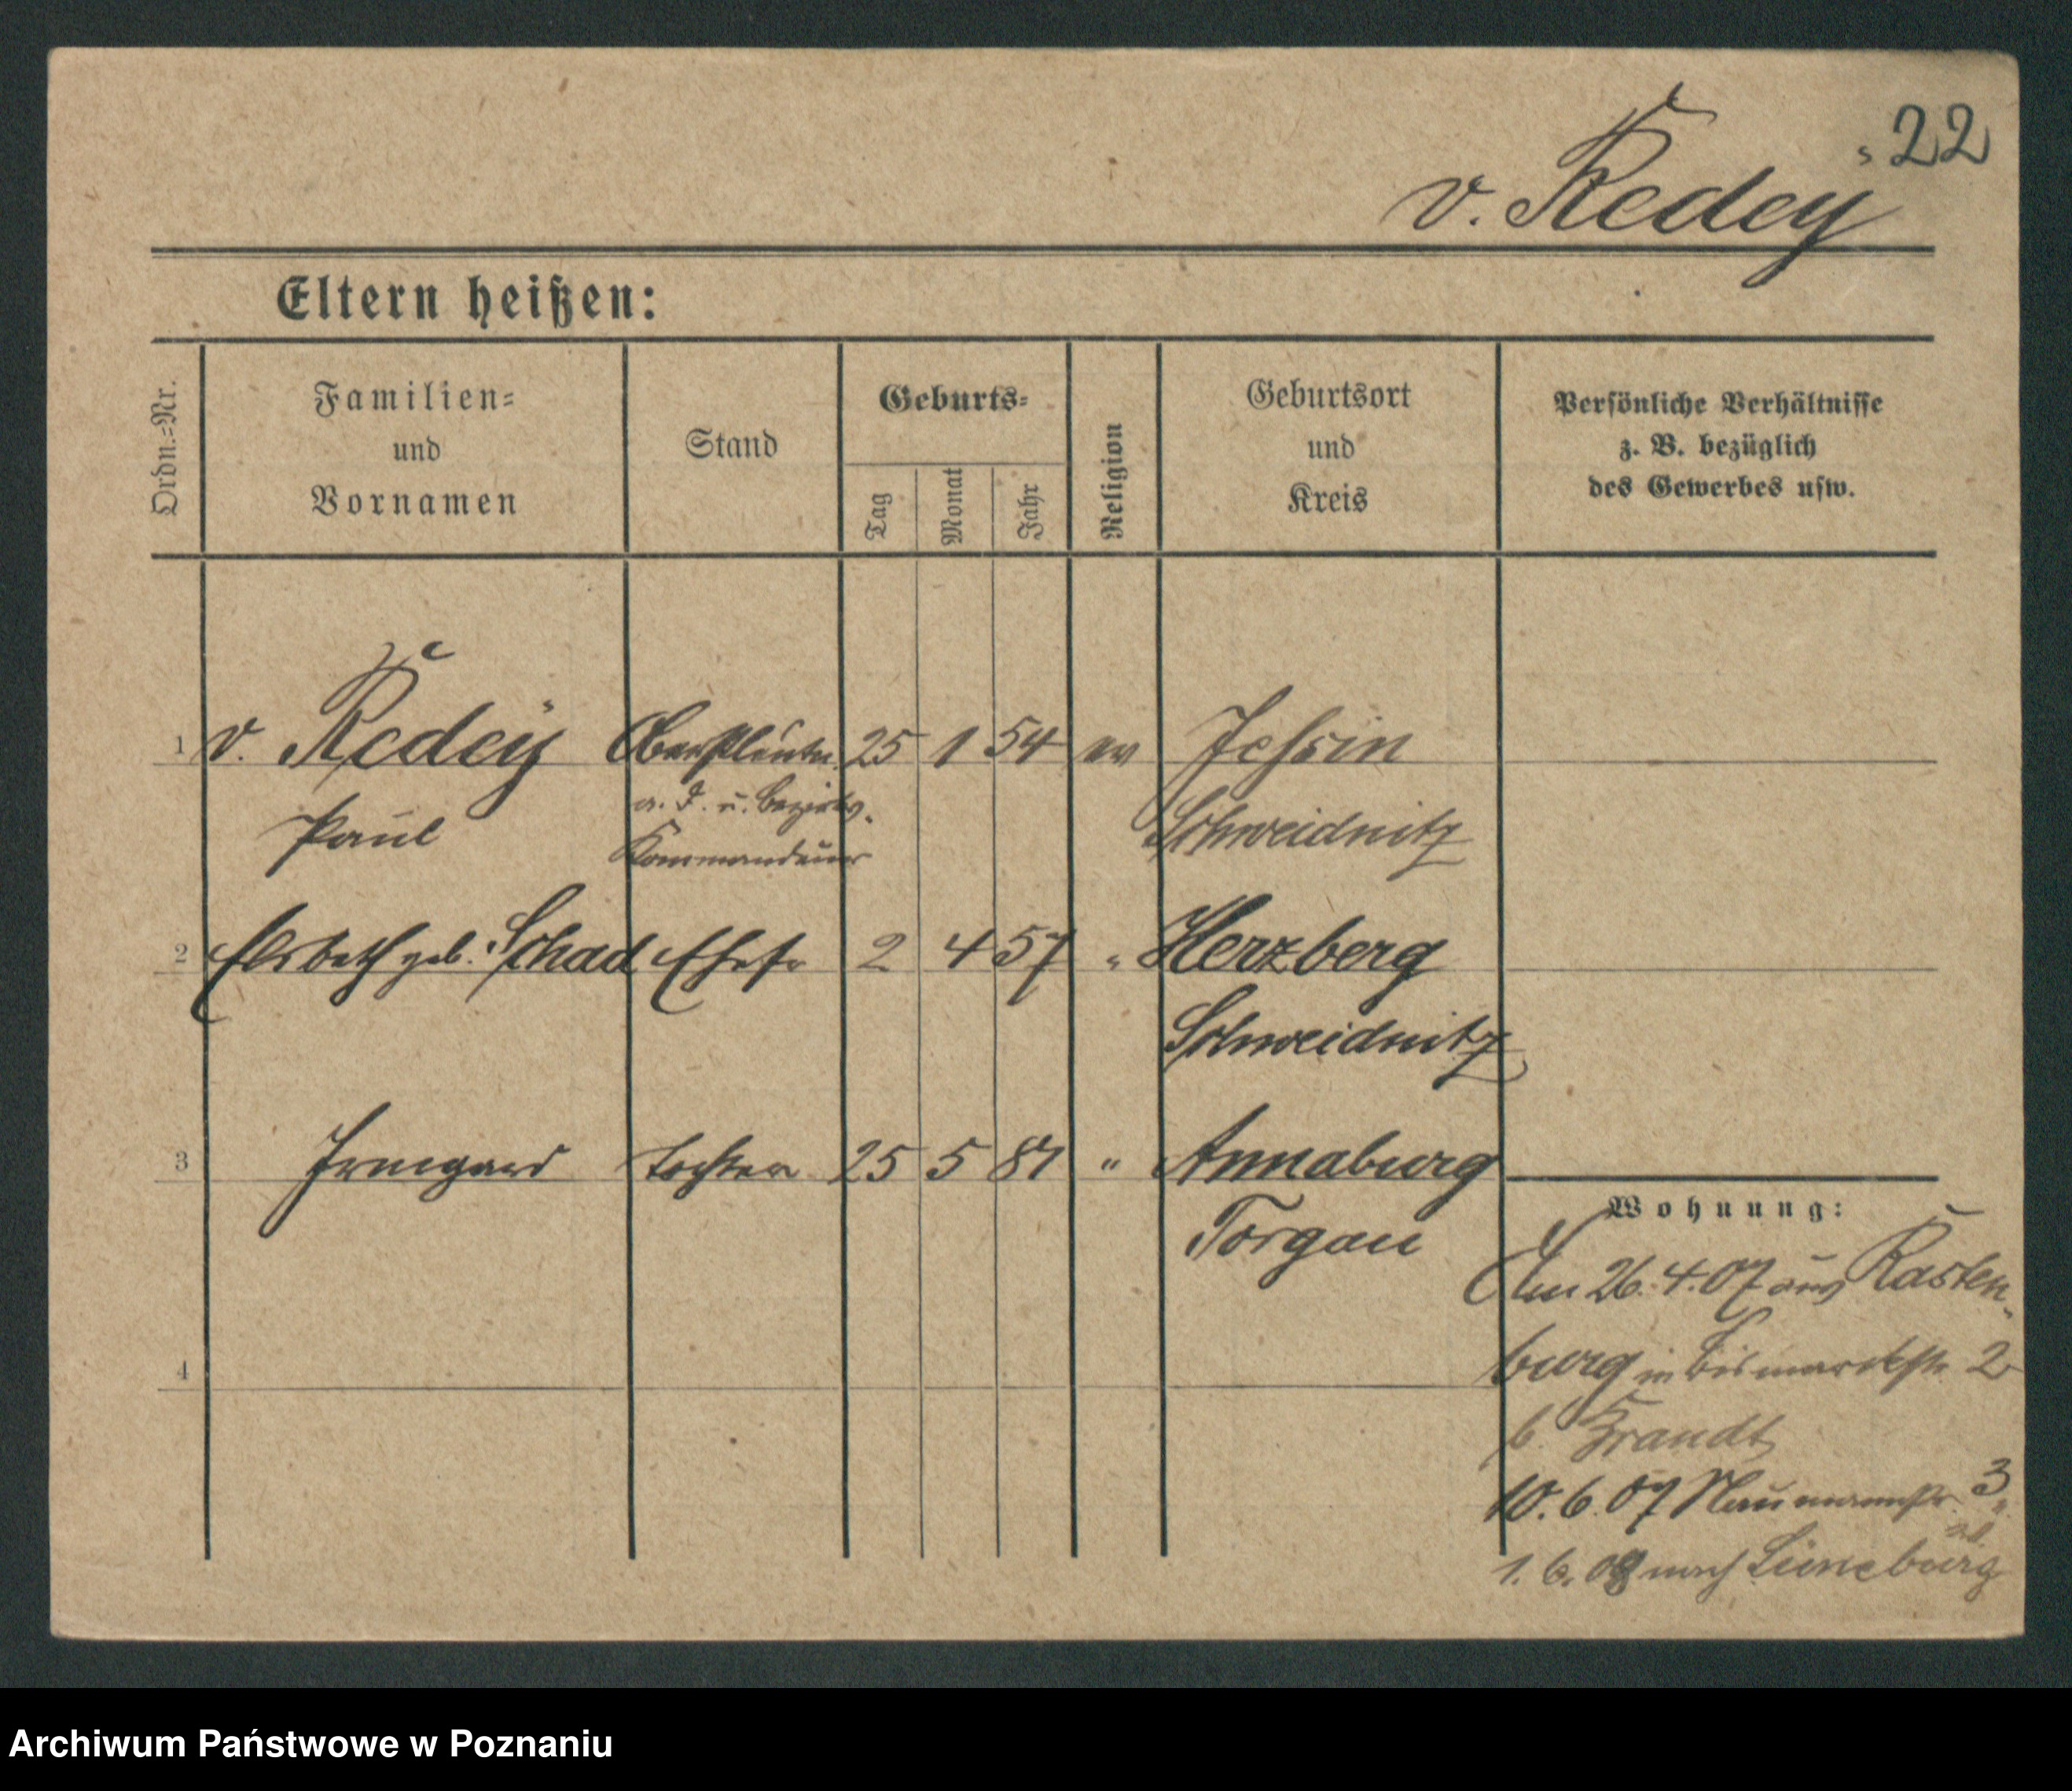 22
v. Kedey
Eltern heißen:
Ordn.=Nr.
Familien=
und
Vornamen
Stand
Geburts=
Tag
Monat
Jahr
Religion
Geburtsort
und
Kreis
Persönliche Verhältnisse
z. B. bezüglich
des Gewerbes usw.
1 v. Kedeÿ Oberstleutn. 25 1 54 ev Jesrin
a. D. u. Bezirks-
Paul Kommandeur Schweidnitz
2 Elsbeth geb. Schad Ehefr 2 4 57 " Herzberg
Schweidnitz
3 Irmgard Tochter 25 5 87 " Annaburg
Torgau
Wohnung:
Am 26.4.07 aus Rasten-
burg in Bismarckstr. 2
b. Brandt
10.6.07 Naumannstr. 3
1.6.08 nach Lüneburg
4
Archiwum Państwowe w Poznaniu